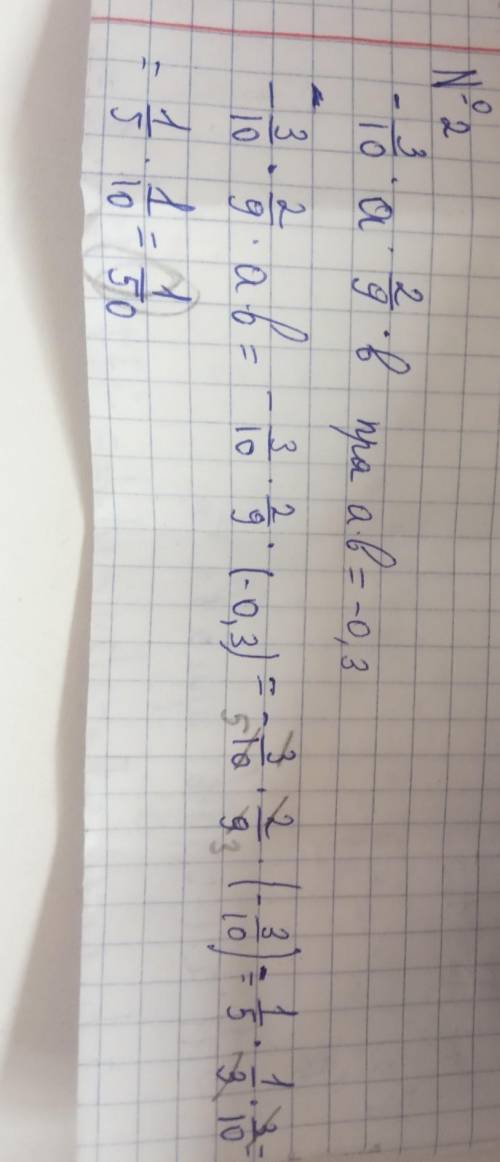 № 2
- 3/10 · a · 2/9 · b при a·b = -0,3
- 3/10 · 2/9 · a·b = - 3/10 · 2/9 · (-0,3) = - 3/10 5 · 2/9 3 · (- 3/10) = 1/5 · 1/3 · 3/10 =
= 1/5 · 1/10 = 1/50